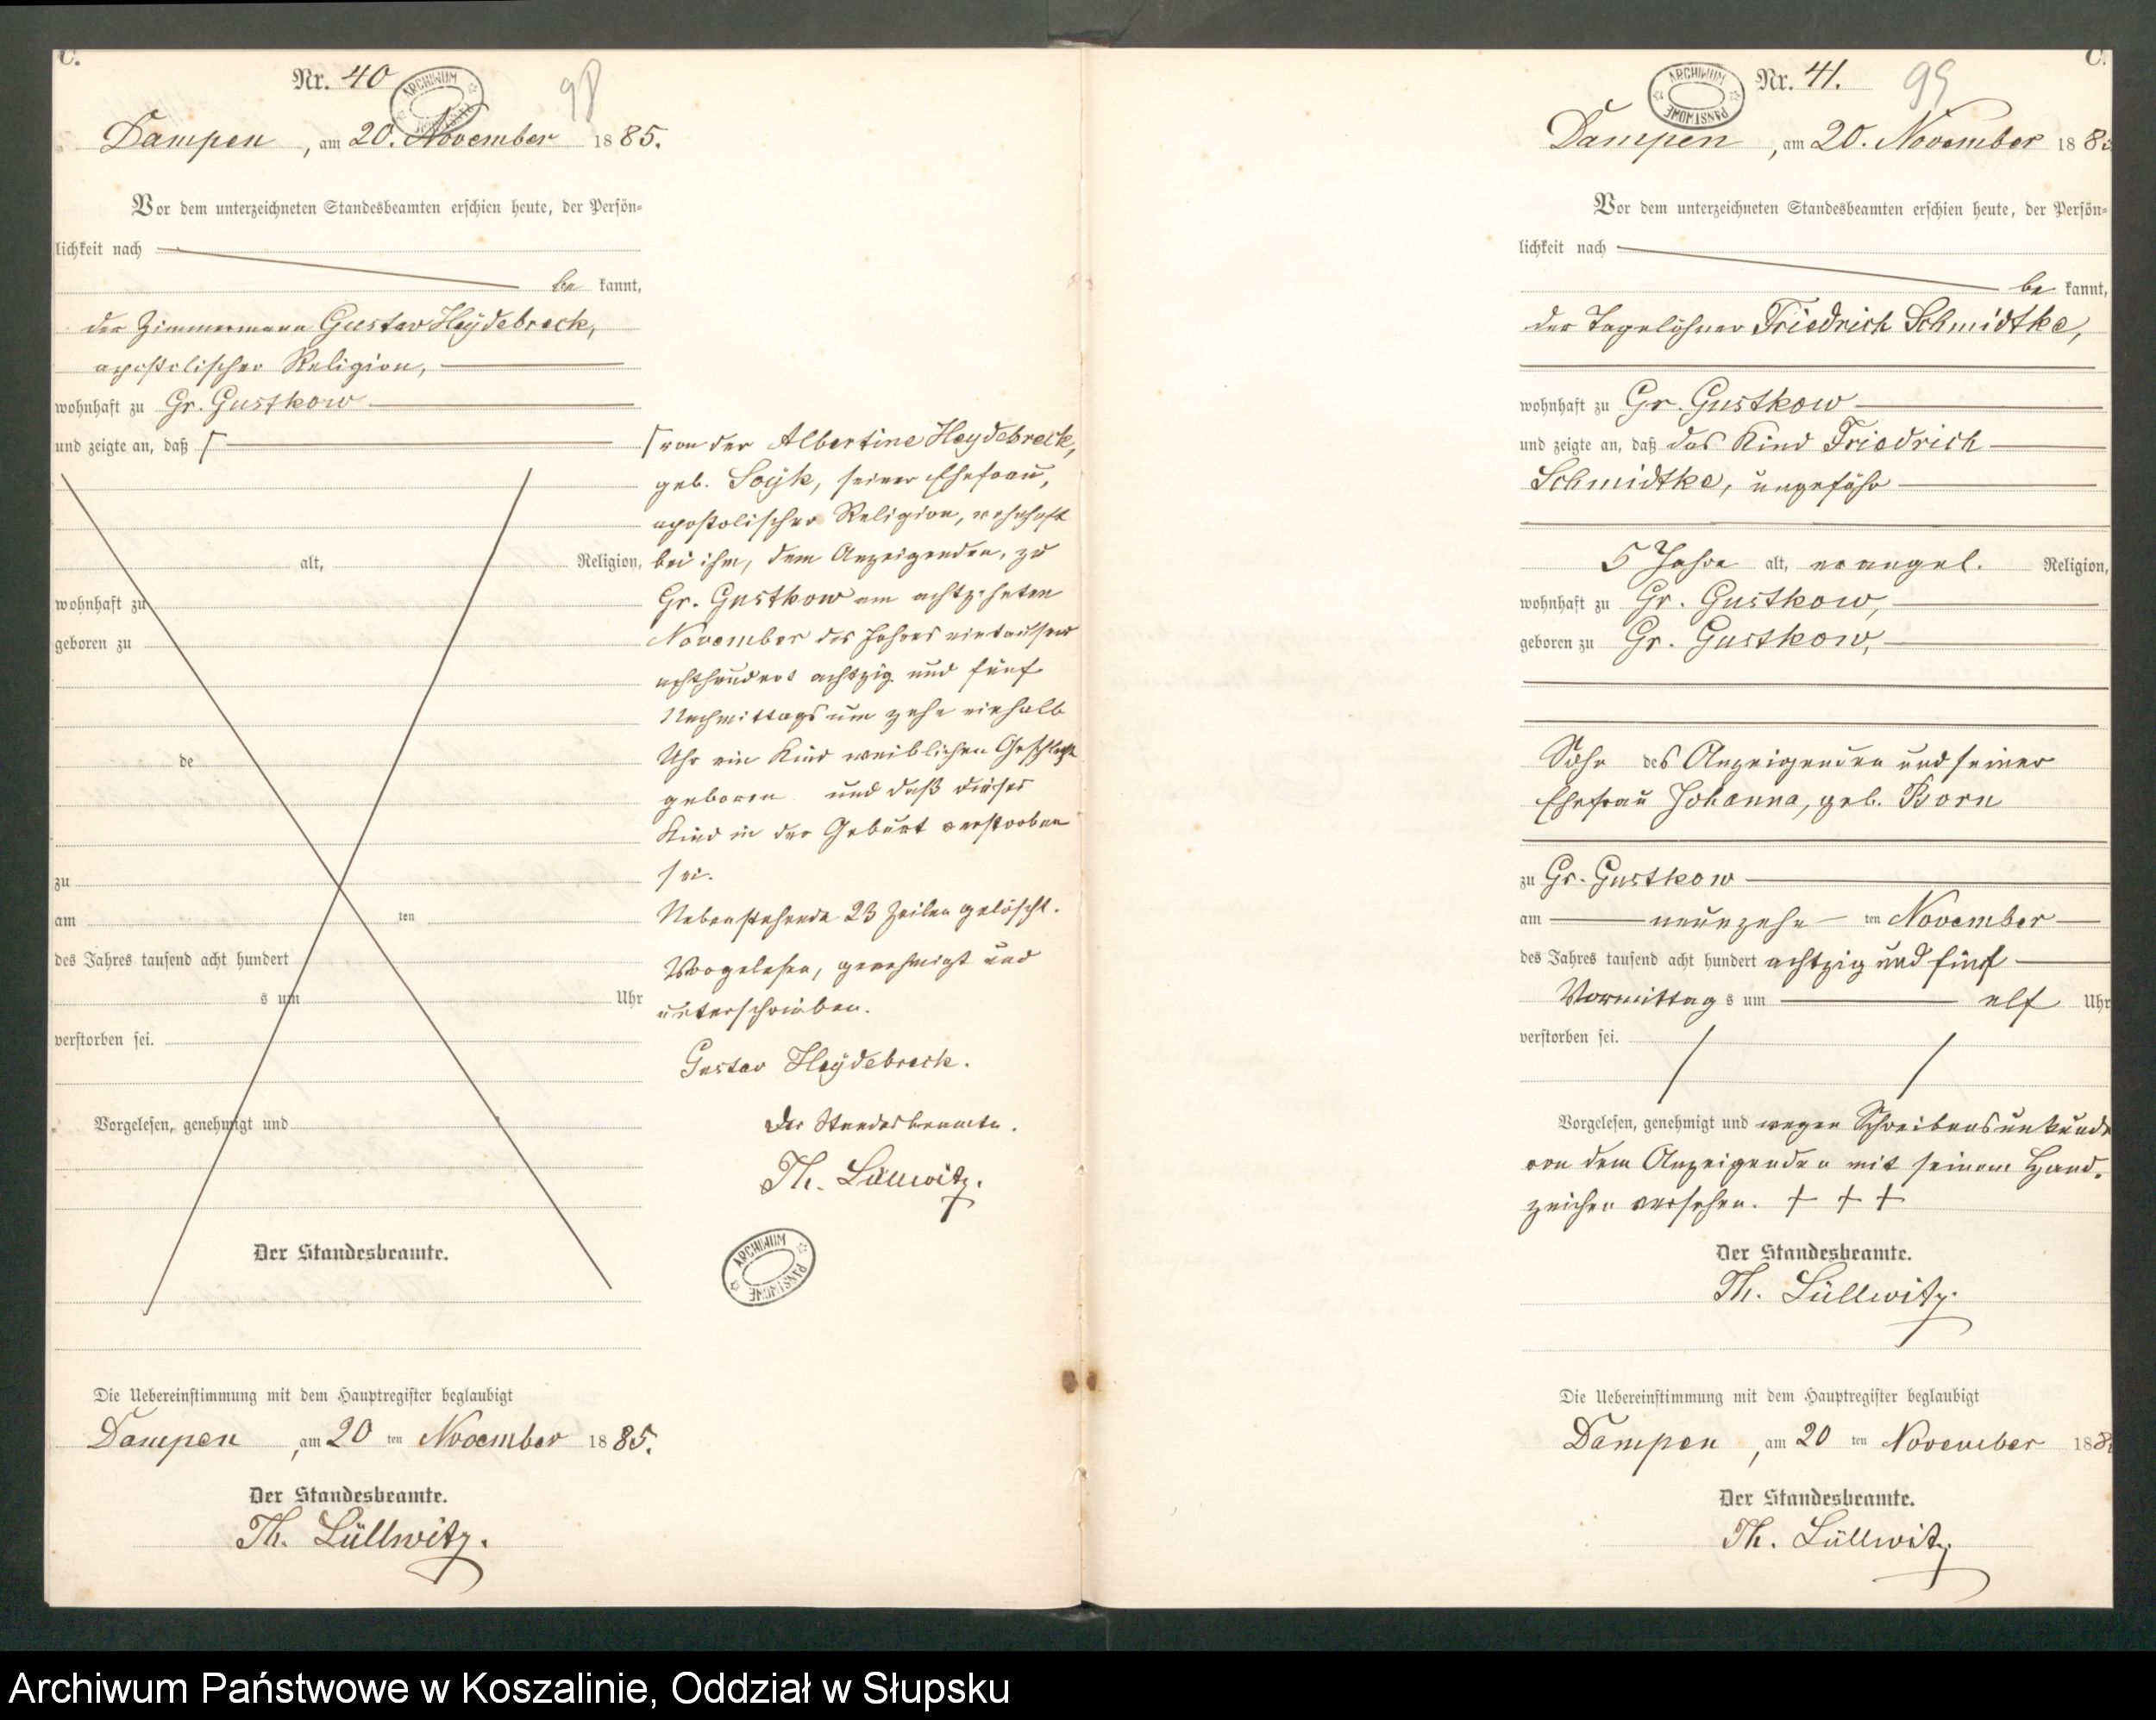 C.
Nr. 40
98
ARCHIWUM PAŃSTWOWE
Dampen, am 20. November 1885.
Vor dem unterzeichneten Standesbeamten erschien heute, der Persön-
lichkeit nach
be kannt,
der Zimmermann Gustav Heydebreck,
apostolischer Religion,
wohnhaft zu Gr. Gustkow
und zeigte an, daß
alt, Religion,
wohnhaft zu
geboren zu
de
zu
am ten
des Jahres tausend acht hundert
s um Uhr
verstorben sei.
Vorgelesen, genehmigt und
Der Standesbeamte.
von der Albertine Heydebreck,
geb. Soyk, seiner Ehefrau,
apostolischer Religion, wohnhaft
bei ihm, dem Anzeigenden, zu
Gr. Gustkow am achtzehnten
November des Jahres eintausend
achthundert achtzig und fünf
Nachmittags um zehn einhalb
Uhr ein Kind weiblichen Geschlechts
geboren und daß dieses
Kind in der Geburt verstorben
sei.
Nebenstehende 23 Zeilen gelöscht.
Vorgelesen, genehmigt und
unterschrieben.
Gustav Heydebreck.
Der Standesbeamte.
Th. Lüllwitz.
ARCHIWUM PAŃSTWOWE
Die Uebereinstimmung mit dem Hauptregister beglaubigt
Dampen, am 20 ten November 1885.
Der Standesbeamte.
Th. Lüllwitz.
C.
ARCHIWUM PAŃSTWOWE
Nr. 41.
99
Dampen, am 20. November 188
Vor dem unterzeichneten Standesbeamten erschien heute, der Persön-
lichkeit nach
be kannt,
der Tagelöhner Friedrich Schmidtke,
wohnhaft zu Gr. Gustkow
und zeigte an, daß das Kind Friedrich
Schmidtke, ungefähr
5 Jahre alt, evangel. Religion,
wohnhaft zu Gr. Gustkow,
geboren zu Gr. Gustkow,
Sohn des Anzeigenden und seiner
Ehefrau Johanna, geb. Born
zu Gr. Gustkow
am neunzehn ten November
des Jahres tausend acht hundert achtzig und fünf
Vormittag s um elf Uhr
verstorben sei.
Vorgelesen, genehmigt und wegen Schreibensunkunde
von dem Anzeigenden mit seinem Hand-
zeichen versehen. + + +
Der Standesbeamte.
Th. Lüllwitz.
Die Uebereinstimmung mit dem Hauptregister beglaubigt
Dampen, am 20 ten November 188
Der Standesbeamte.
Th. Lüllwitz
Archiwum Państwowe w Koszalinie, Oddział w Słupsku